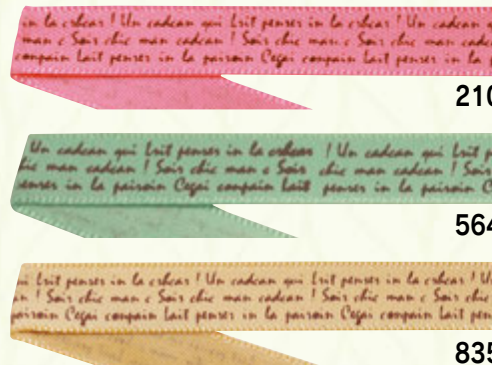 in la crhear ! Un cadcan qui Lrit penser in la crhear ! Un cadcan
man c Soir chic man cadcan ! Soir chic man c Soir chic man cadc
compain Lait penser in la pairoin Cegai compain Lait penser in la
210
Un cadcan qui Lrit penser in la crhear ! Un cadcan qui Lrit
chic man cadcan ! Soir chic man c Soir chic man cadcan ! Soir
penser in la pairoin Cegai compain Lait penser in la pairoin
564
Lrit penser in la crhear ! Un cadcan qui Lrit penser in la crhear ! Un
! Soir chic man c Soir chic man cadcan ! Soir chic man c Soir chic
pairoin Cegai compain Lait penser in la pairoin Cegai compain Lait
835